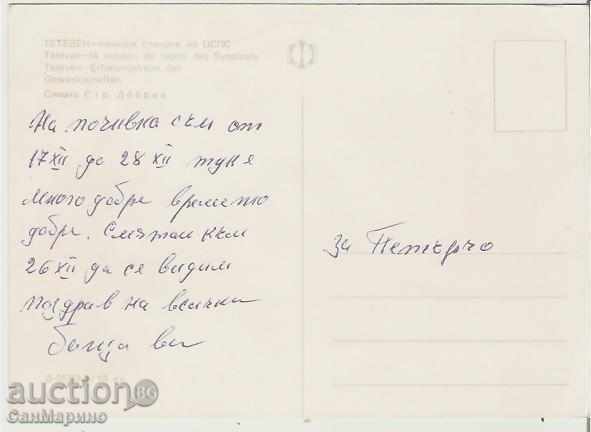 ТЕТЕВЕН—почивна станция на ЦСПС
Teteven—la maison de repos des Syndicats
Teteven—Erholungsheim der
Gewerkschaften
Снимка Стр. Добрев
На почивка съм от
17 XII до 28 XII тук е
много добре времето
добре. Смятам към
26 XII да се видим
поздрав на всички
баща ви
за Петърчо
auction BG
СанМарино